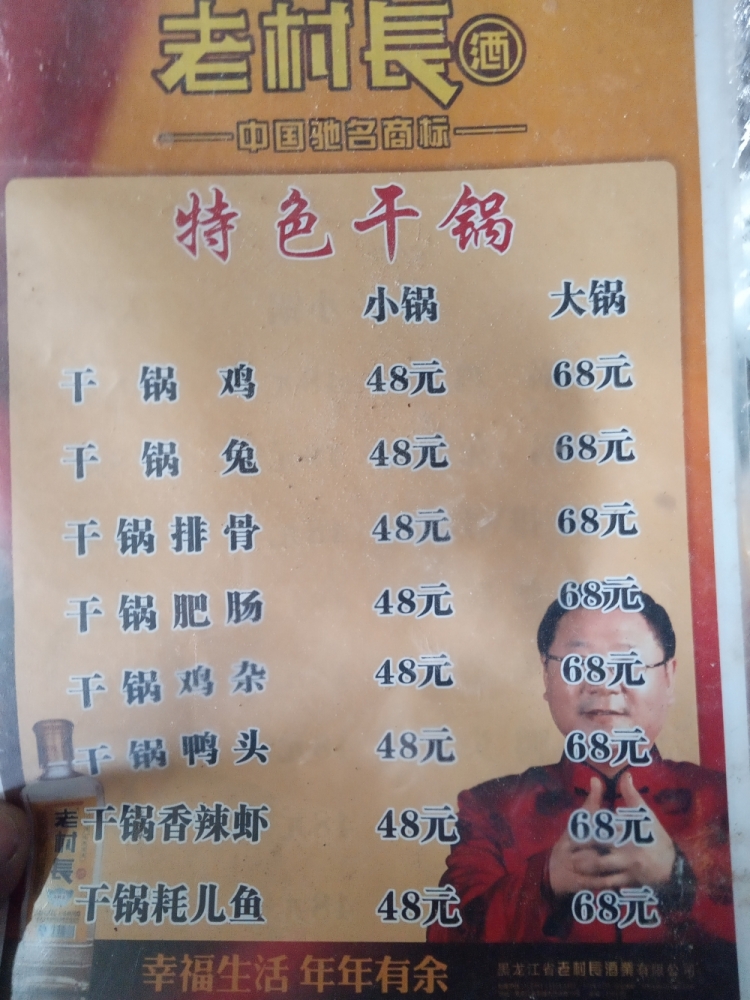 老村長酒
中国驰名商标
特色干锅
小锅 大锅
干锅鸡 48元 68元
干锅兔 48元 68元
干锅排骨 48元 68元
干锅肥肠 48元 68元
干锅鸡杂 48元 68元
干锅鸭头 48元 68元
干锅香辣虾 48元 68元
干锅耗儿鱼 48元 68元
老村長
幸福生活 年年有余
黑龙江省老村長酒業有限公司